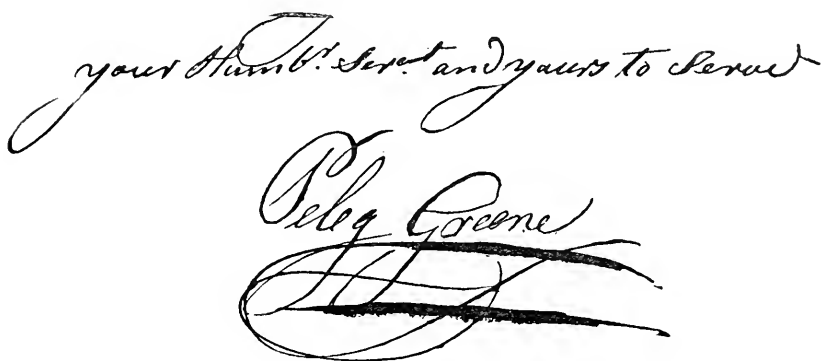 your Humbr. Servt and yours to Serve
Peleg Greene